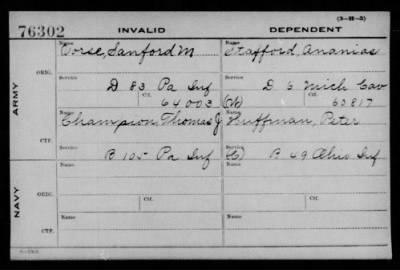 (3-H-3)
76302 INVALID DEPENDENT
Name Vorse, Sanford M Name Stafford, Ananias
ORIG.
Service D 83 Pa Inf Service D 6 Mich Cav
Ctf. 64003 (W) Ctf. 65817
ARMY
Name Champion, Thomas J Name Huffman, Peter
CTF.
Service B 105 Pa Inf Service (C) B 49 Ohio Inf
NAVY
Name Name
ORIG.
Service Ctf. Service Ctf.
Name Name
CTF.
Service Service